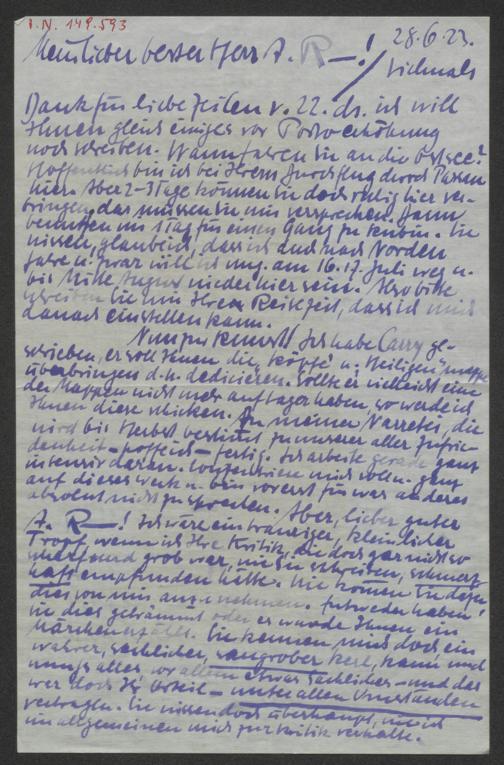 I.N. 149.593
28.6.23.
Mein lieber bester Herr A. R—!
Vielmals
Dank für liebe Zeilen v. 22. ds. ich will
Ihnen gleich einiges vor Portoerhöhung
noch schreiben. Wann fahren Sie an die Ostsee?
Hoffentlich bin ich bei Ihrem Durchflug durch Passau
hier. Aber 2-3 Tage können Sie doch ruhig hier ver-
bringen, das müssen Sie mir versprechen. Dann
benutzen wir 1 Tag für einen Gang zu Kubin. Sie
wissen, glaube ich, dass ich auch nach Norden
fahre u. zwar will ich ung. am 16. 17. Juli weg u.
bis Mitte August wieder hier sein. Also bitte
schreiben Sie mir Ihre Reisezeit, dass ich mich
danach einstellen kann.
Nun zur Kunst! Ich habe Carry ge-
schrieben, er soll Ihnen die „Köpfe" u. „Heiligen" mappe
überbringen d.h. dedicieren. Sollte er vielleicht eine
der Mappen nicht mehr auf Lager haben, so werde ich
Ihnen diese schicken. Zu meiner Narretei, die
wird bis Herbst bestimmt zu unserer aller Zufrie-
denheit – hoffentl. – fertig. Ich arbeite gerade ganz
intensiv daran. Konzentriere mich voll u. ganz
auf dieses Werk u. bin vorerst für was anderes
absolut nicht zu sprechen. Aber, lieber guter
A. R—! Ich wäre ein trauriger, kleinlicher
Tropf, wenn ich Ihre Kritik, die doch gar nicht so
scharf und grob war, wie Sie schreiben, schmerz-
haft empfunden hätte. Wie können Sie denn
dies von mir annehmen. Entweder haben
Sie dies geträumt oder es wurde Ihnen ein
Märchen erzählt. Sie kennen mich doch ein
wahrer, sachlicher, saugrober Kerl, kann und
muss alles vor allem etwas Sachliches – und das
war doch Ihr Urteil – unter allen Umständen
vertragen. Sie wissen doch überhaupt, wie ich
im allgemeinen mich zur Kritik verhalte.